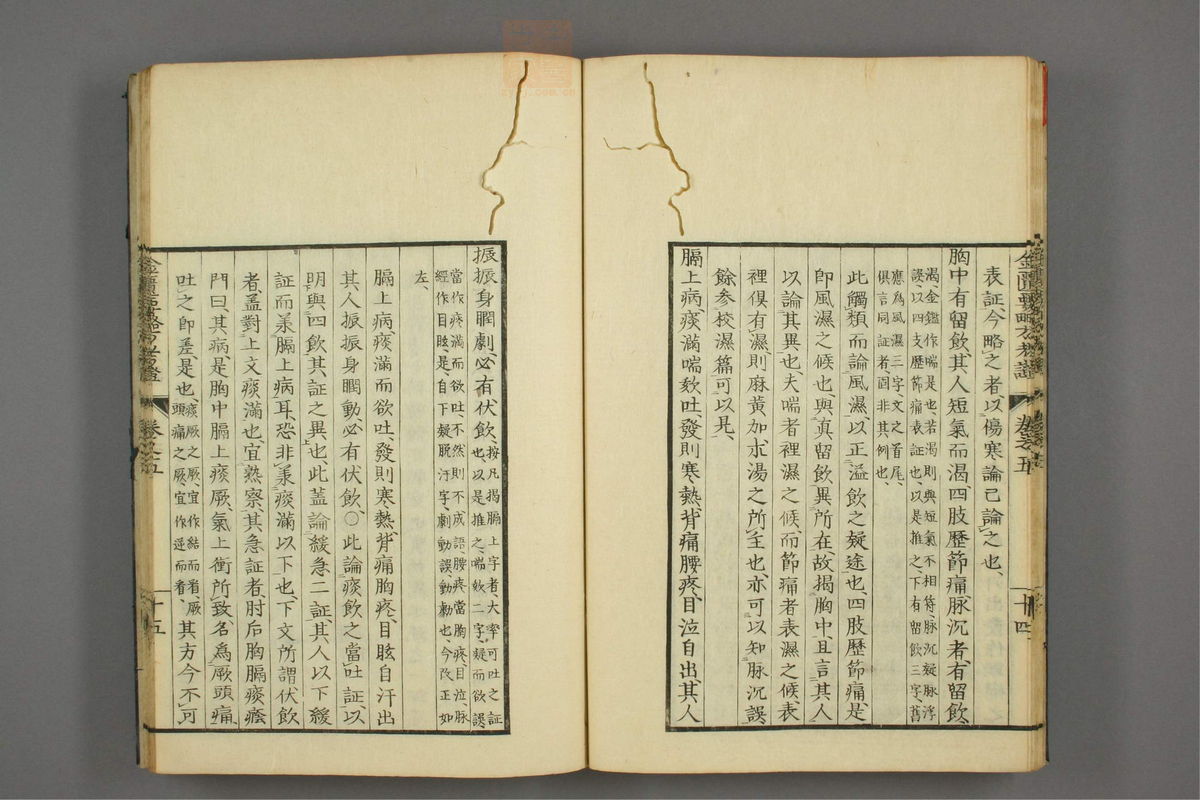 表証、今略之者、以傷寒論已論之也、
胸中有留飲、其人短氣而渴、四肢歷節痛、脉沉者、有留飲、
渴、金鑑作喘是也、若渴則與短氣不相符、脉沉疑脉浮
誤、以四支歷節痛表証也、以是推之、下有留飲三字、舊
應為風濕三字、文之首尾、
俱言同証者、固非其例也、
此觸類而論風濕、以正溢飲之疑途也、四肢歷節痛、是
即風濕之候也、與真留飲異所在、故揭胸中、且言其人
以論其異也、夫喘者裡濕之候、而節痛者表濕之候、表
裡俱有濕、則麻黃加朮湯之所主也、亦可以知脉沉誤
餘參校濕篇、可以見、
膈上病、痰滿喘欬吐、發則寒熱、背痛腰疼、目泣自出、其人
振振身瞤劇、必有伏飲、
按凡揭膈上字者、大率可吐之証
也、以是推之、喘欬二字、疑而欲誤
當作痰滿而欲吐、不然則不成語、腰疼當胸疼、目泣、脉
經作目眩、是、自下疑脫汗字、劇動誤、動勮也、今改正如
左、
膈上病、痰滿而欲吐、發則寒熱、背痛胸疼、目眩自汗出
其人振振身瞤動、必有伏飲、○此論痰飲之當吐証、以
明與四飲其証之異也、此蓋論緩急二証、其人以下緩
証而承膈上病耳、恐非承痰滿以下也、下文所謂伏飲
者、蓋對上文痰滿也、宜熟察其急証者、肘后胸膈痰癊
門曰、其病是胸中膈上痰厥、氣上衝所致、名為厥頭痛
吐之即差、是也、
痰厥之厥、宜作結而看、厥
頭痛之厥、宜作逆而看、
其方今不可
卷之五
十四
卷之五
十五